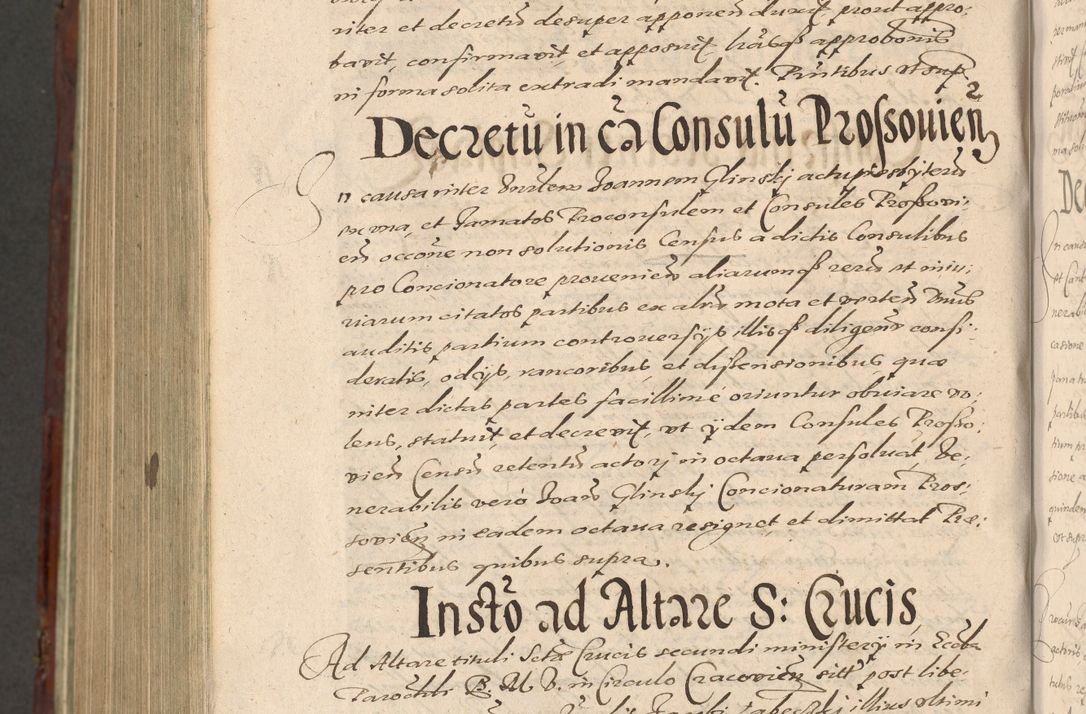 riter et decretū desuper apponen̄ duxit prout appro:
bavit, confirmavit, et apposuit, hāsq̃ approbonis
in forma solita extradi mandavit. Pr̄ntibus ut supr.
Decretū in cā Consulū Prossovien̄
In causa inter Vn̄lem Joannem Glinskj actu presbyterū
ex una, et Famatos Proconsulem et Consules Prossovi:
en̄ occōne non solutionis Census a dictis Consulibus
pro Concionatore provenien̄ aliarumq̃ rerū et iniu:
riarum citatos partibus ex alr̄a mota et verten̄ Dn̄us
auditis partium controversijs illisq̃ diligenr̄ consi:
deratis, odijs, rancoribus, et dissensionibus, quæ
inter dictas partes facillimè oriuntur obviare vo:
lens, statuit, et decrevit, ut ijdem Consules Prosso:
vien̄ Censū retentū actorj in octava persolvāt Ve:
nerabilis verò Joan̄s Glinskj Concionaturam Pros:
sovien̄ in eadem octava resignet et dimittat Præ:
sentibus quibus supra.
Instō ad Altare S: Crucis
Ad Altare tituli Sctæ Crucis secundi ministerij in Eccl̄a
Parochli B. M. V. in Circulo Cracovien̄ sitt̄ post libe:
illius ultimi